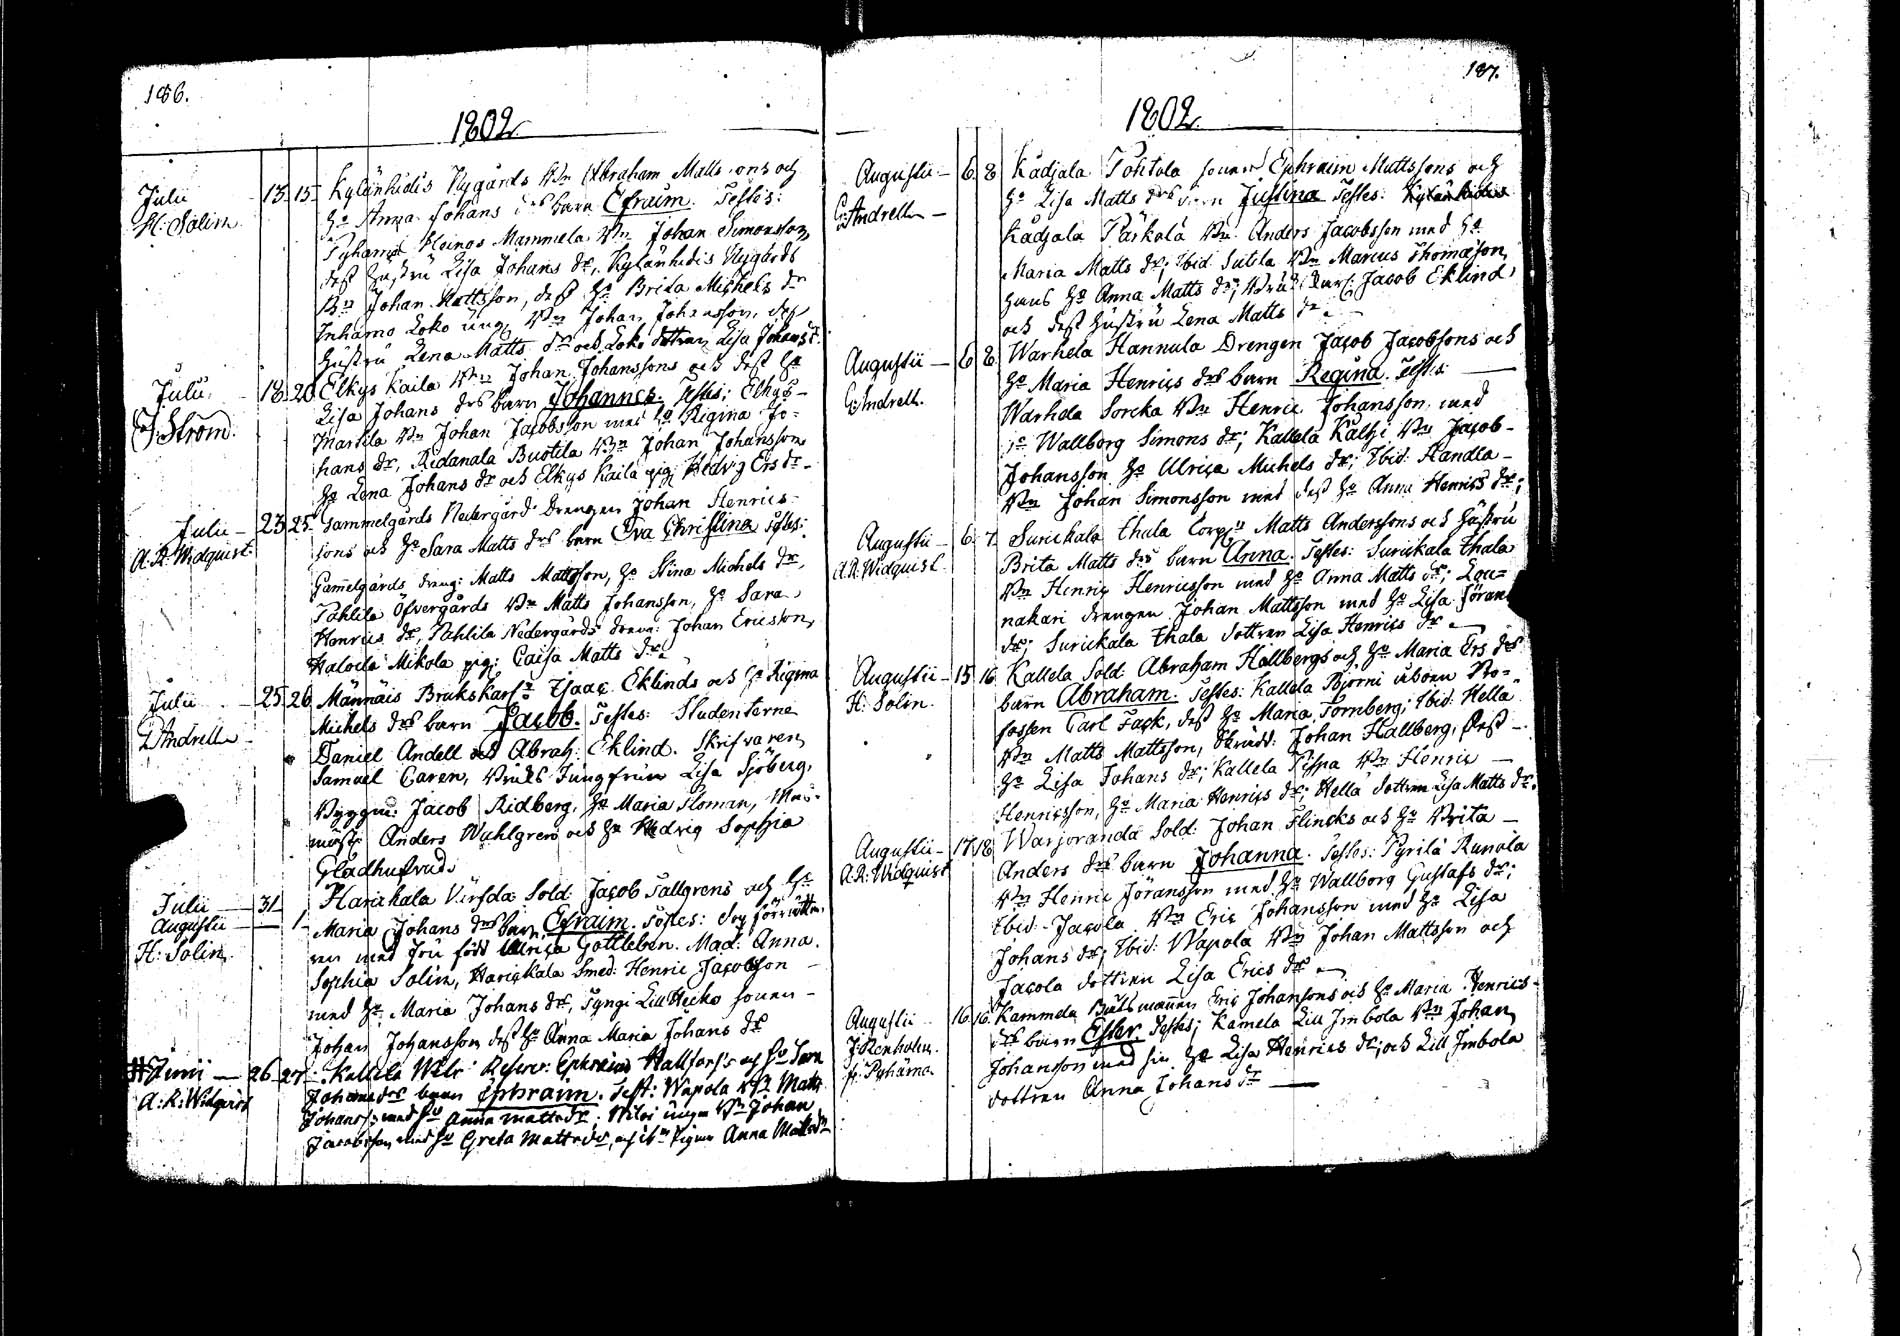 186.
1802
Julii 13. 15. Kylänhidis Nygårds Bn Abraham Mattssons och
H: Solin. Ho Anna Johans drs barn Efraim. Testes:
Pyharnd Heinos Mammela Bn Johan Simonsson,
dess hustru Lisa Johans dr, Kylänhidis Nygårds
Bn Johan Mattsson, dess Ho Brita Michels dr
Inhamo Loko Bn Johan Johansson, dess
hustru Lena Matts dr och Loko dottren Lisa Johans dr
Julii 18. 20 Elkys Kaila Bn Johan Johanssons och dess Ho
J: Ström. Lisa Johans drs barn Johannes. Testes; Elkys-
Marttila Bn Johan Jacobsson med Ho Regina Jo=
hans dr, Ridanala Buotila Bn Johan Johansson
Ho Lena Johans dr och Elkys Kaila pig: Hedvig Ers dr-
Julii - 23. 25. Gammelgårds Nedergård Drengen Johan Henrics-
A. R. Widquist. sons och Ho Sara Matts drs barn Eva Christina Testes:
Gamelgårds dreng: Matts Mattsson, Ho Stina Michels dr,
Pahlila Öfvergårds Bn Matts Johansson, Ho Sara
Henrics dr, Pahlila Nedergårds dreng: Johan Ericsson,
Mikola pig: Caisa Matts dr.
Julii 25. 26 Männäis Bruks Isaac Eklinds och Ho Regina
Andrell Michels drs barn Jacob. Testes: Studenterne
Daniel Andell och Abrah: Eklind. Skrifvaren
Samuel Caren, Jungfrun Lisa Sjöberg,
Byggm: Jacob Ridberg, Ho Maria Floman,
Anders Wahlgren och Ho Hedvig Sophia
Julii - 31 Harickala Sold: Jacob Tallgrens och Ho
Augustii - 1 Maria Johans drs barn Efraim. Testes:
H: Solin. med fru född Ulrica Gottleben. Mad: Anna
Sophia Solin, Harickala Smed: Henric Jacobsson -
med Ho Maria Johans dr, Tyngi Lill Heiko sonen -
Johan Johansson dess Ho Anna Maria Johans dr
# Junii - 26. 27. Kallela Reserv: Ephraim Hallfors's och Ho
A: R: Widqvist Johans drs barn Ephraim. Test: Wapola Bn Matts
Johanss: med Ho Anna Matts dr; Bn Johan
Jacobsson med Ho Greta Matts dr, och Pigan Anna Matts dr
187.
1802
Augustii - 6. 8. Kådjala Pohtola sonen Ephraim Mattssons och
G: Andrell - Ho Lisa Matts drs barn Justina Testes:
Kådjala Pärkolä Bn Anders Jacobsson med Ho
Maria Matts dr; Ibid: Sutela Bn Marcus Thomasson,
hans Ho Anna Matts dr; Jacob Eklind
och dess hustru Lena Matts dr.
Augustii - 6 8 Warhela Hannula Drengen Jacob Jacobsons och
G: Andrell. Ho Maria Henrics drs barn Regina. Testes:
Warhela Sorcka Bn Henric Johansson, med
Ho Wallborg Simons dr; Kallela Kälhi Bn Jacob-
Johansson Ho Ulrica Michels dr; Ibid: Handla-
Bn Johan Simonsson med dess Ho Anna Henrics dr;
Augustii - 6. 7. Surickala Ihala Matts Anderssons och hustru
A. R. Widquist. Brita Matts drs barn Anna. Testes: Surickala Ihala
Bn Henric Henricsson med Ho Anna Matts dr; Lou=
nakari drengen Johan Mattsson med Ho Lisa Jöran
dr; Surickala Ihala dottren Lisa Henrics dr
Augustii - 15 16 Kallela Sold: Abraham Hallbergs och Ho Maria Ers drs
H: Solin. barn Abraham. Testes: Kallela Björni Pro=
fossen Carl Fack, dess Ho Maria Tornberg; Ibid: Hella
Bn Matts Mattsson, Johan Hallberg, Dess -
Ho Lisa Johans dr; Kallela Pispa Bn Henric -
Henricsson, Ho Maria Henrics dr; Hella dottren Lisa Matts dr.
Augustii - 17 18. Warjoranda Sold: Johan Flincks och Ho Brita -
A: R: Widquist Anders drs barn Johanna. Testes: Pyrilä Runola
Bn Henric Jöransson med Ho Wallborg Gustafs dr;
Ibid: Jacola Bn Eric Johansson med Ho Lisa
Johans dr; Ibid: Wapola Bn Johan Mattsson och
Jacola dottren Lisa Erics dr
Augustii 16. 16. Kammela Båtsmannen Eric Johansons och Ho Maria Henrics-
J: Renholm. drs barn Ester. Testes; Kamela Lill Imbola Bn Johan
p: Pyhämo. Johanson med sin Ho Lisa Henrics dr; och Lill Imbola
dottren Anna Johans dr